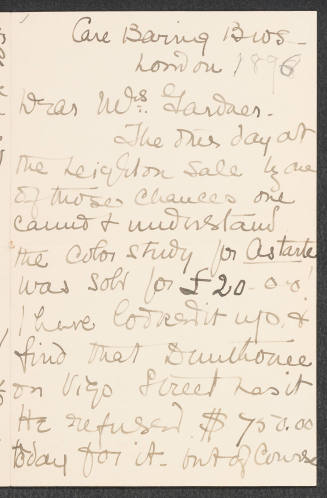 Care Baring Bros -
London 1896
Dear Mrs. Gardner -
The other day at
the Leighton Sale by one
of those chances one
cannot understand
the color study for Astarte
was sold for £20-0-0!
I have looked it up, &
find that Dunthorne
on Vigo Street has it
He refused $750.00
today for it - but of course